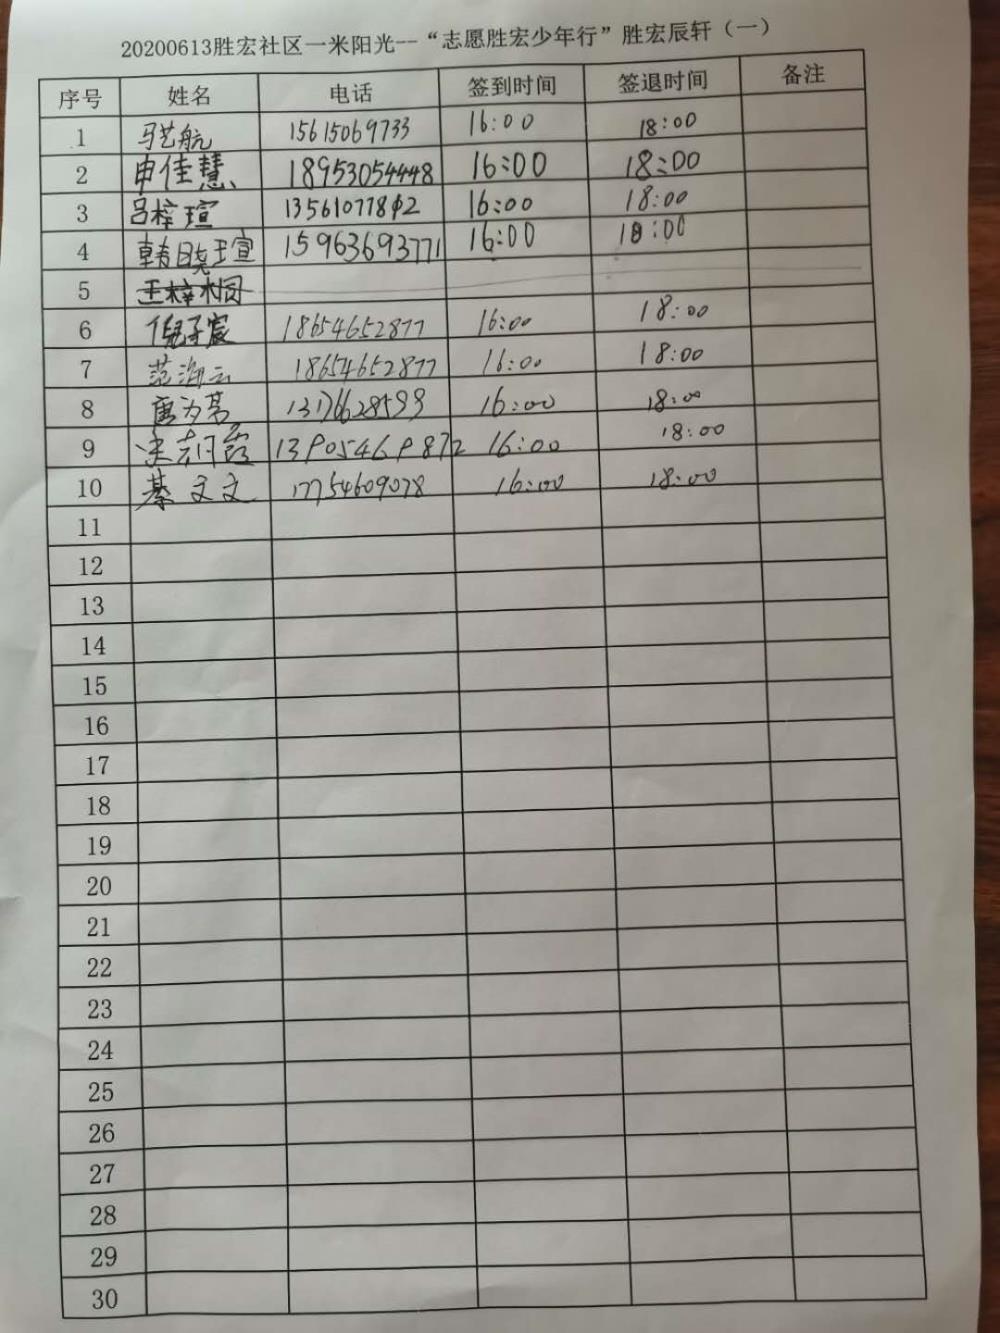 20200613胜宏社区一米阳光--“志愿胜宏少年行”胜宏辰轩（一）
序号 姓名 电话 签到时间 签退时间 备注
1 马艺航 15615069733 16:00 18:00
2 申佳慧 18953054448 16:00 18:00
3 吕梓瑄 13561077802 16:00 18:00
4 韩晓瑄 15963693771 16:00 18:00
5 王梓桐
6 倪子宸 18654652877 16:00 18:00
7 范海云 18654652877 16:00 18:00
8 唐为 16:00 18:00
9 霞 13905469872 16:00 18:00
10 綦文文 17754609078 16:00 18:00
11
12
13
14
15
16
17
18
19
20
21
22
23
24
25
26
27
28
29
30